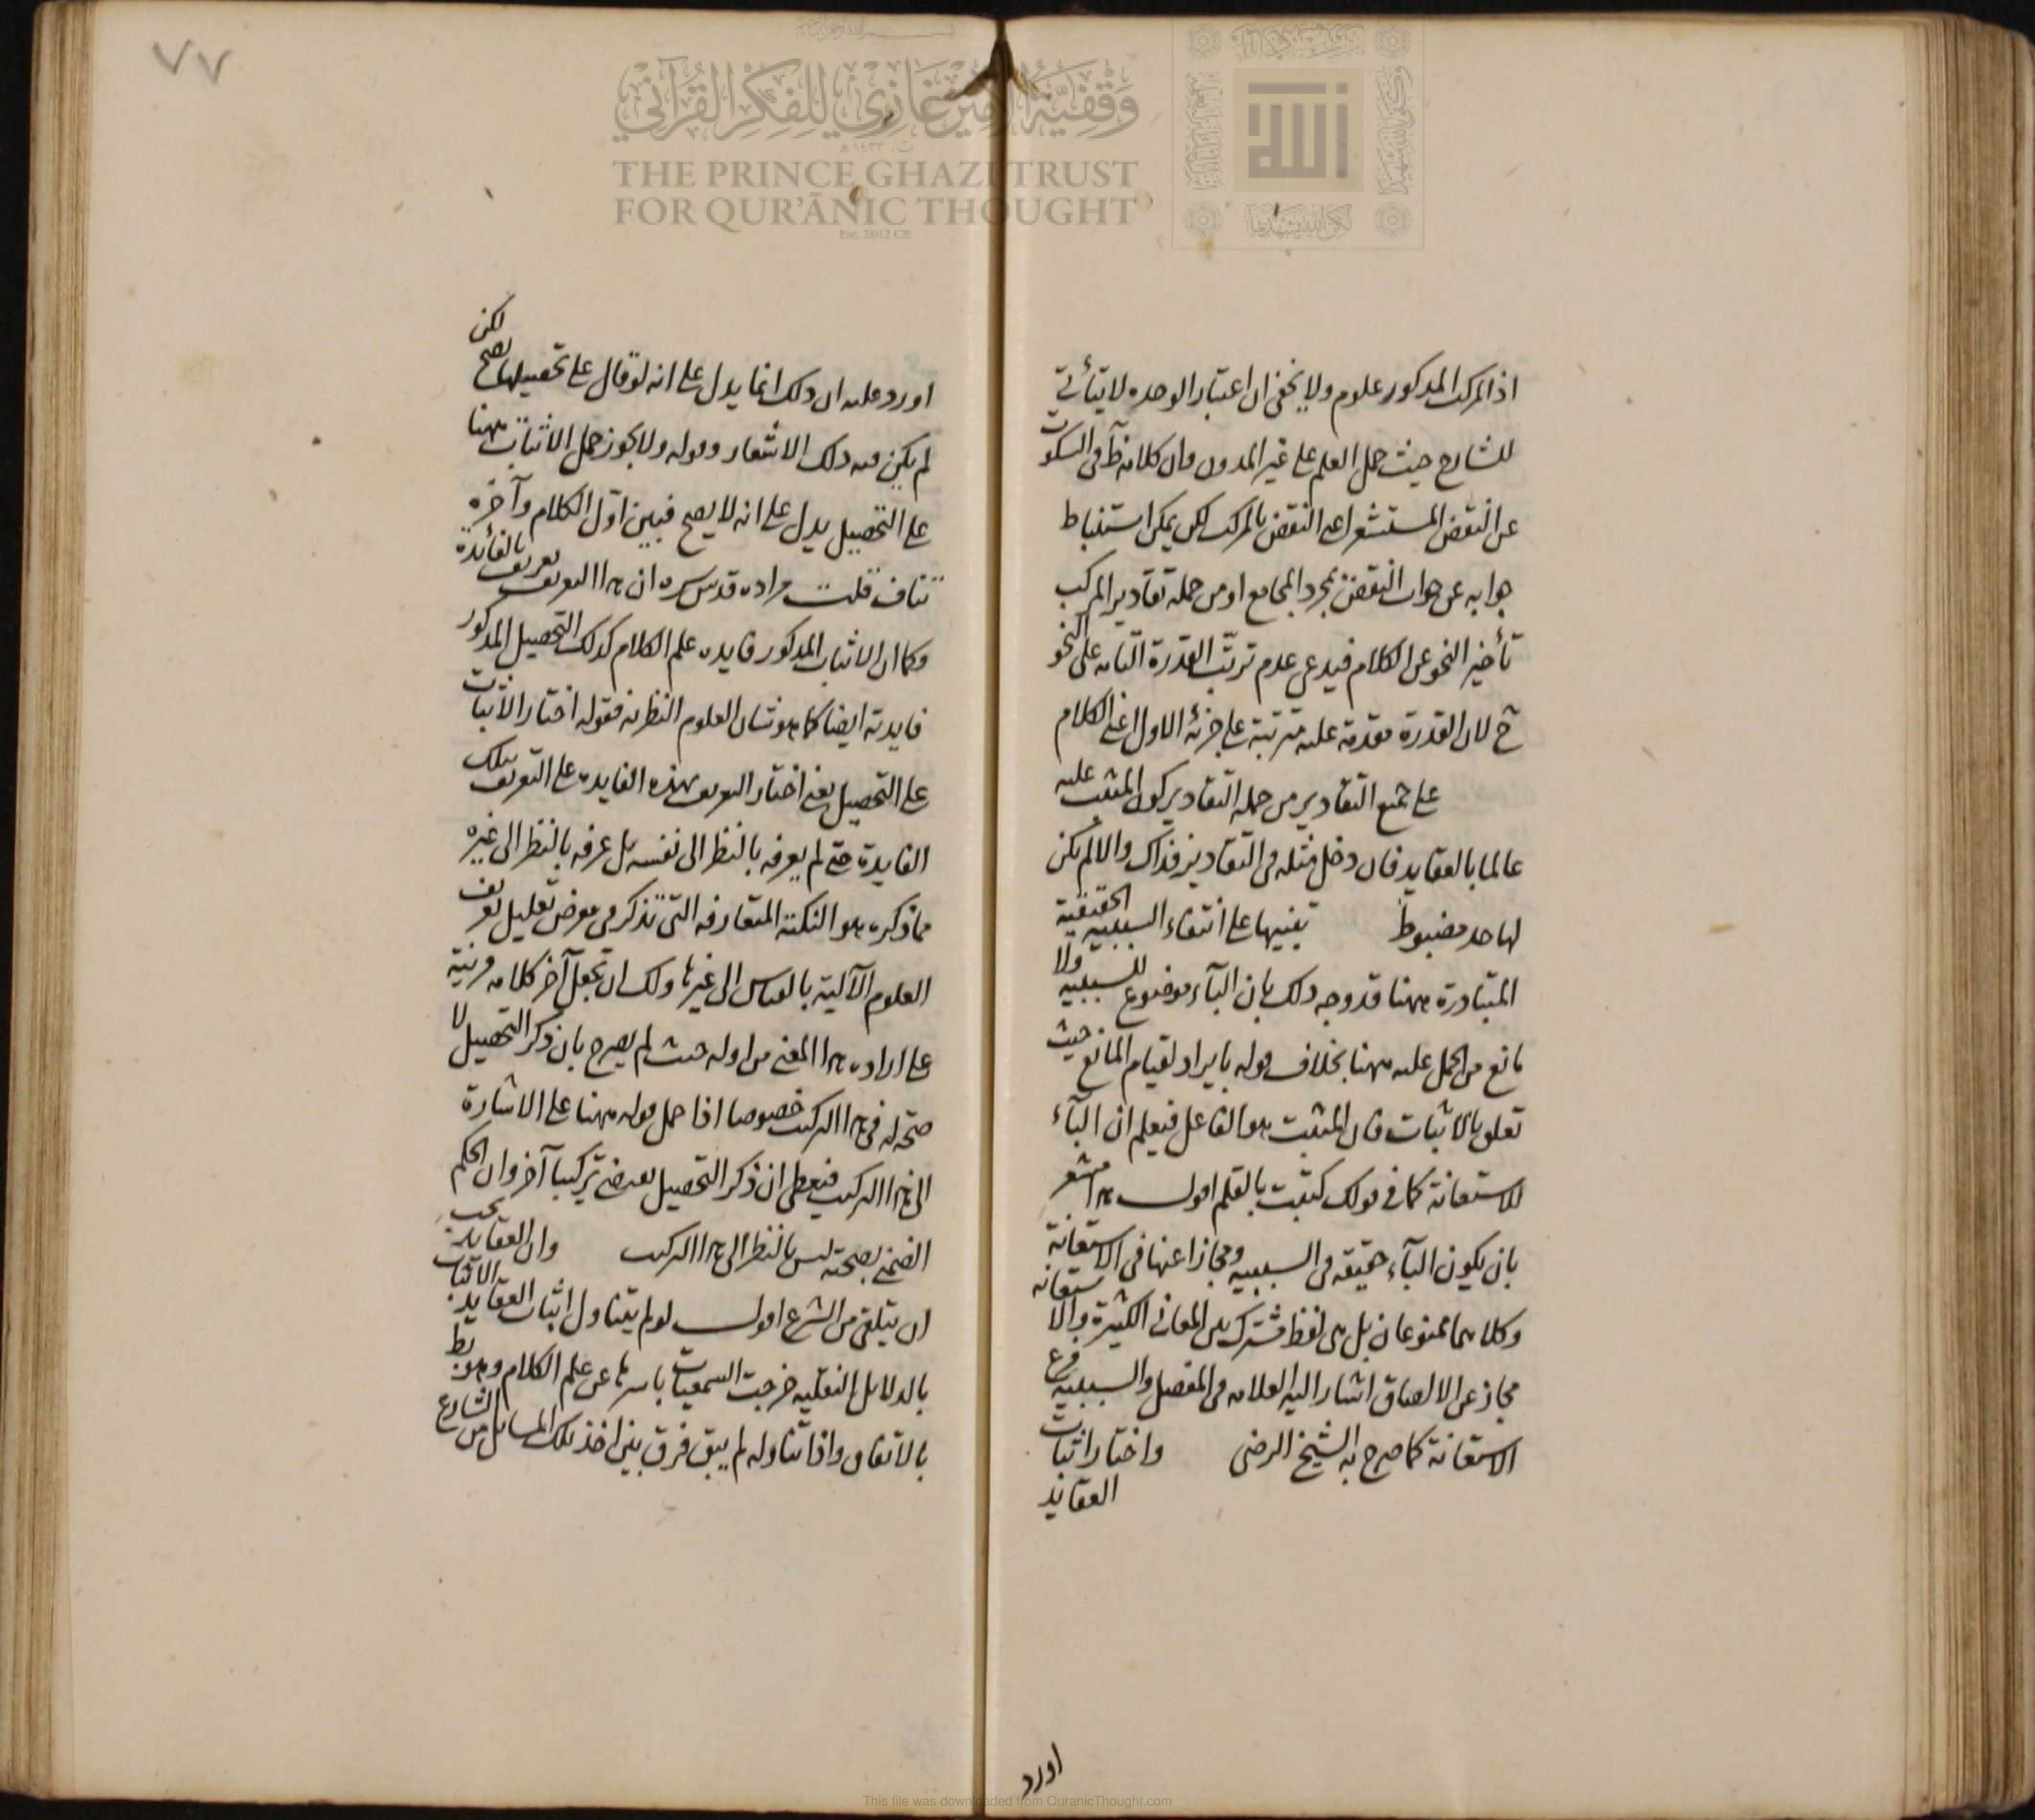 اذ المركب المذكور علوم ولا يخفى ان اعتبار الوحده لا يتأتى
للشارح حيث حمل العلم على غير المدون وان كلامه ظ فى السكوت
عن النقض المستشعر اعنى النقض بالمركب لكن يمكن استنباط
جوابه عن جواب النقض بمجرد المجامع اذ من جملة تقادير المركب
تأخير النحو عن الكلام فيدعى عدم ترتب القدرة التامه على النحو
ح لان القدرة مقدمة عليه مترتبة على جزئه الاول اعنى الكلام
على جميع التقادير من جمله التقادير كون المثبت عليه
عالما بالعقايد فان دخل مثله فى التقادير فذاك والا لم يكن
لها حد مضبوط تنبيها على انتفاء السببيه الحقيقية
المتبادرة ههنا قد وجه ذلك بان الباء موضوع للسببيه ولا
مانع من الحمل عليه ههنا بخلاف قوله بايراد لقيام المانع حيث
تعلق بالاثبات فان المثبت هو الفاعل فيعلم ان الباء
للاستعانة كما فى قولك كتبت بالقلم اقول هذا مشعر
بان يكون الباء حقيقه فى السببيه ومجازا عنها فى الاستعانة
وكلاهما ممنوعان بل هى لفظ مشترك بين المعانى الكثيرة والاستعانه
مجاز عن الالصاق اشار اليه العلامه فى المفصل والسببيه فرع
الاستعانة كما صرح به الشيخ الرضى واختار اثبات
العقايد
اورد
٧٧
اورد عليه ان ذلك انما يدل على انه لو قال على تحصيلها يصح لكن
لم يكن فيه ذلك الاشعار وقوله ولا يجوز حمل الاثبات ههنا
على التحصيل يدل على انه لا يصح فبين اول الكلام وآخره
تناف قلت مراده قدس سره ان هذا التعريف تعريف بالفائدة
وكما ان الاثبات المذكور فايده علم الكلام كذلك التحصيل المذكور
فايدته ايضا كما هو شان العلوم النظريه فقوله اختار الاثبات
على التحصيل يعنى اختار التعريف بهذه الفايده على التعريف بتلك
الفايدة حتى لم يعرفه بالنظر الى نفسه بل عرفه بالنظر الى غيره
مما ذكره هو النكتة المتعارفه التى تذكر فى معرض تعليل تعريف
العلوم الآلية بالقياس الى غيرها ولك ان تجعل آخر كلامه قرينة
على اراده هذا المعنى من اوله حيث لم يصرح بان ذكر التحصيل لا
صحة له فى هذا التركيب خصوصا اذا حمل قوله ههنا على الاشارة
الى هذا التركيب فيعطى ان ذكر التحصيل يقتضى تركيبا آخر وان الحكم
الضمنى بصحته ليس بالنظر الى هذا التركيب وان العقايد يجب
ان يتلقى من الشرع اقول لو لم يتناول اثبات العقايد الاثبات
بالدلايل النقليه خرجت السمعيات باسرها عن علم الكلام وهو بط
بالاتفاق واذا تناوله لم يبق فرق بين اخذ تلك المسائل من الشارع
وقفية الأمير غازي للفكر القرآني
THE PRINCE GHAZI TRUST
FOR QUR'ĀNIC THOUGHT
Est. 2012 CE
This file was downloaded from QuranicThought.com